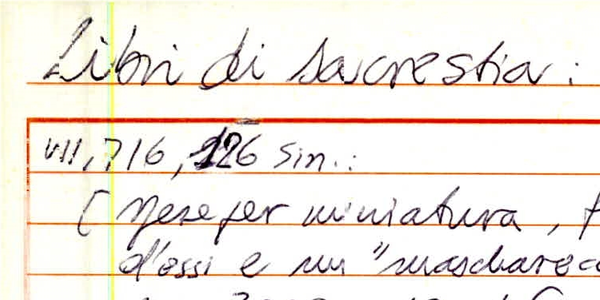 Libri di sacrestia:
VII, 716, 126 sin.:
[ Mese per miniatura,
d'essi e un "mascharec